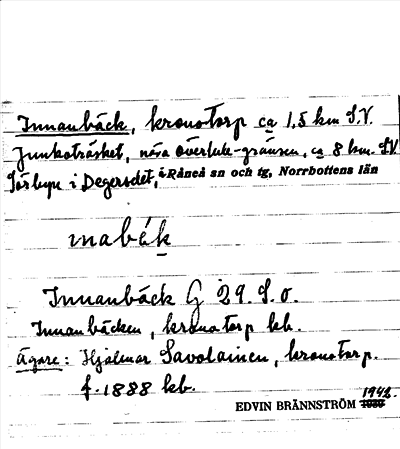 Innanbäck, kronotorp ca 1,5 km S.V.
Junkoträsket, nära Överlule-gränsen, ca 8 km. S.V
Sörbyn i Degerselet, i Råneå sn och tg, Norrbottens län
inabäk
Innanbäck G 29. S. o.
Innanbäcken, kronotorp kb.
Ägare: Hjalmar Savolainen, kronotorp.
f. 1888 kb.
1942.
EDVIN BRÄNNSTRÖM